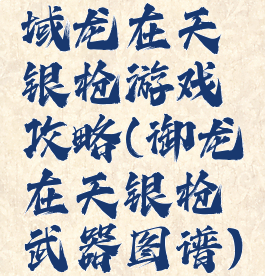 域龙在天
银枪游戏
攻略(御龙
在天银枪
武器图谱)